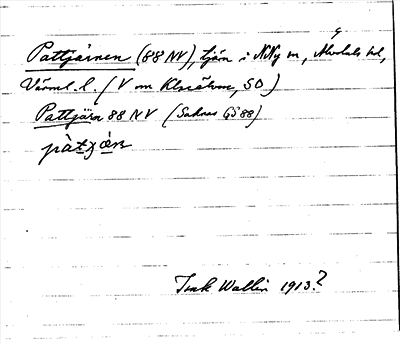 Pattjärnen (88 NV), tjärn i N Ny sn, Älvdals hd,
Värml. l. (V om Klarälven, SO)
Pattjärn 88 NV (Saknas GS 88)
pàtjän
Tork Wallin 1913?